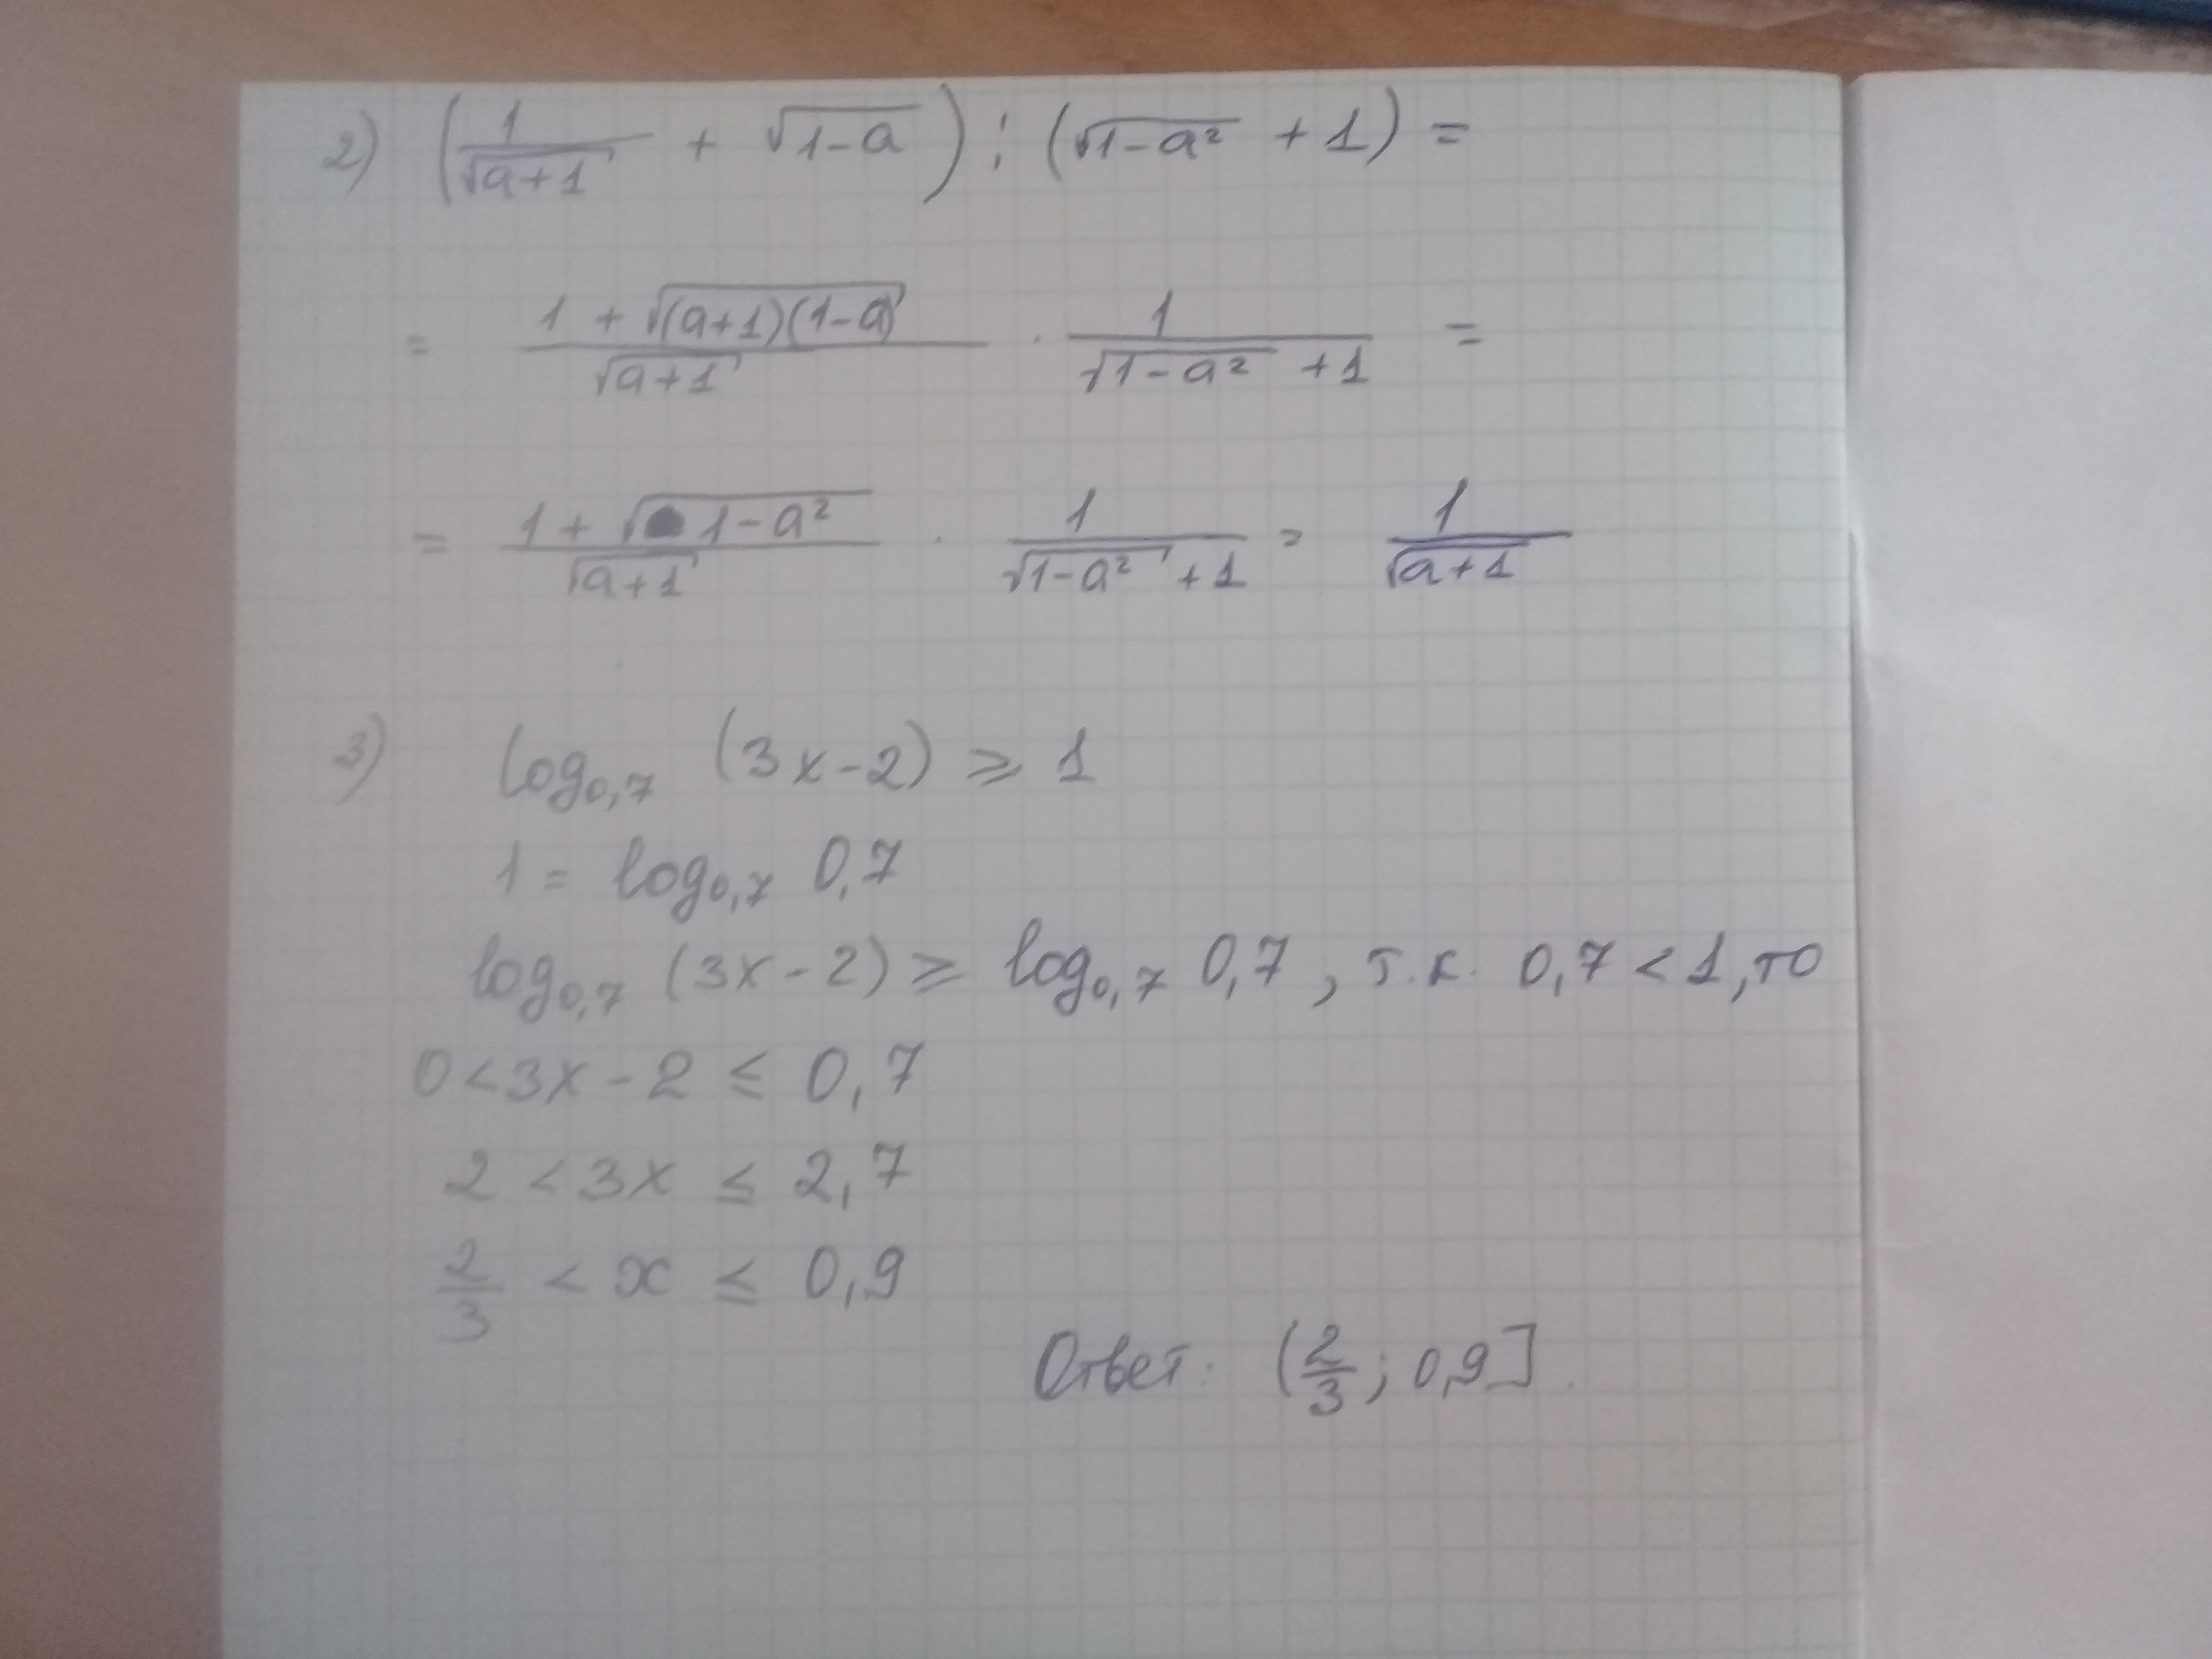 2) (1/√(a+1) + √(1-a)) : (√(1-a²) + 1) =
= (1 + √((a+1)(1-a)))/√(a+1) · 1/(√(1-a²) + 1) =
= (1 + √(1-a²))/√(a+1) · 1/(√(1-a²) + 1) = 1/√(a+1)
3) log₀,₇ (3x-2) ⩾ 1
1 = log₀,₇ 0,7
log₀,₇ (3x-2) ⩾ log₀,₇ 0,7 , т.к. 0,7 < 1, то
0 < 3x - 2 ⩽ 0,7
2 < 3x ⩽ 2,7
2/3 < x ⩽ 0,9
Ответ: (2/3; 0,9].